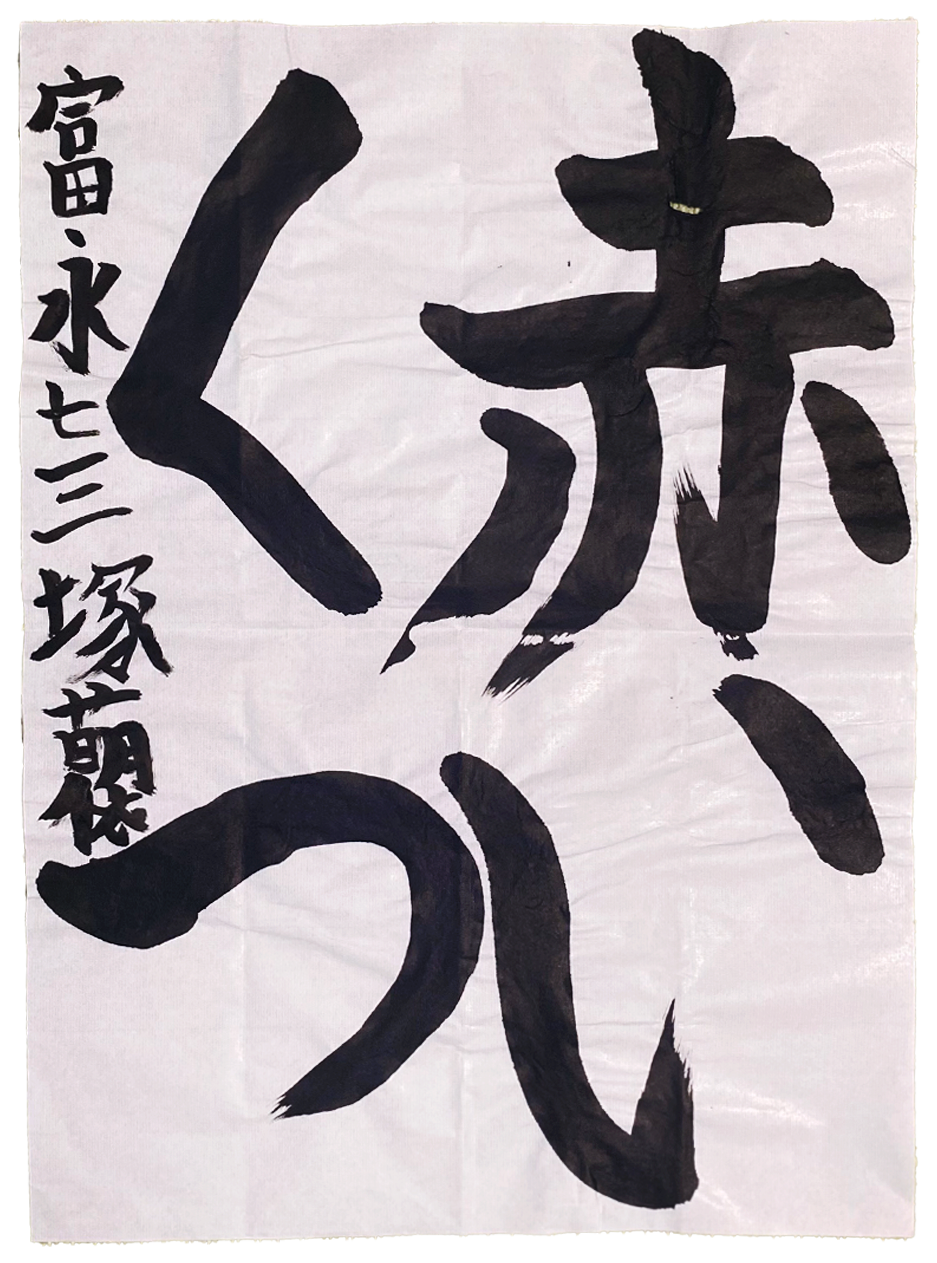 赤い
くつ
富永七三塚萌依